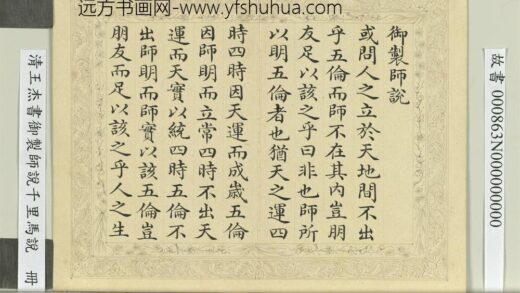 远方书画网-www.yfshuhua.com
故書 000863N0000000000
御製師說
或問人之立於天地間不出
乎五倫而師不在其內豈朋
友足以該之乎曰非也師所
以明五倫者也猶天之運四
時四時因天運而成歲五倫
因師明而立常四時不出天
運而天實以統四時五倫不
出師明而師實以該五倫豈
朋友而足以該之乎人之生
清王杰書御製師說千里馬說 冊